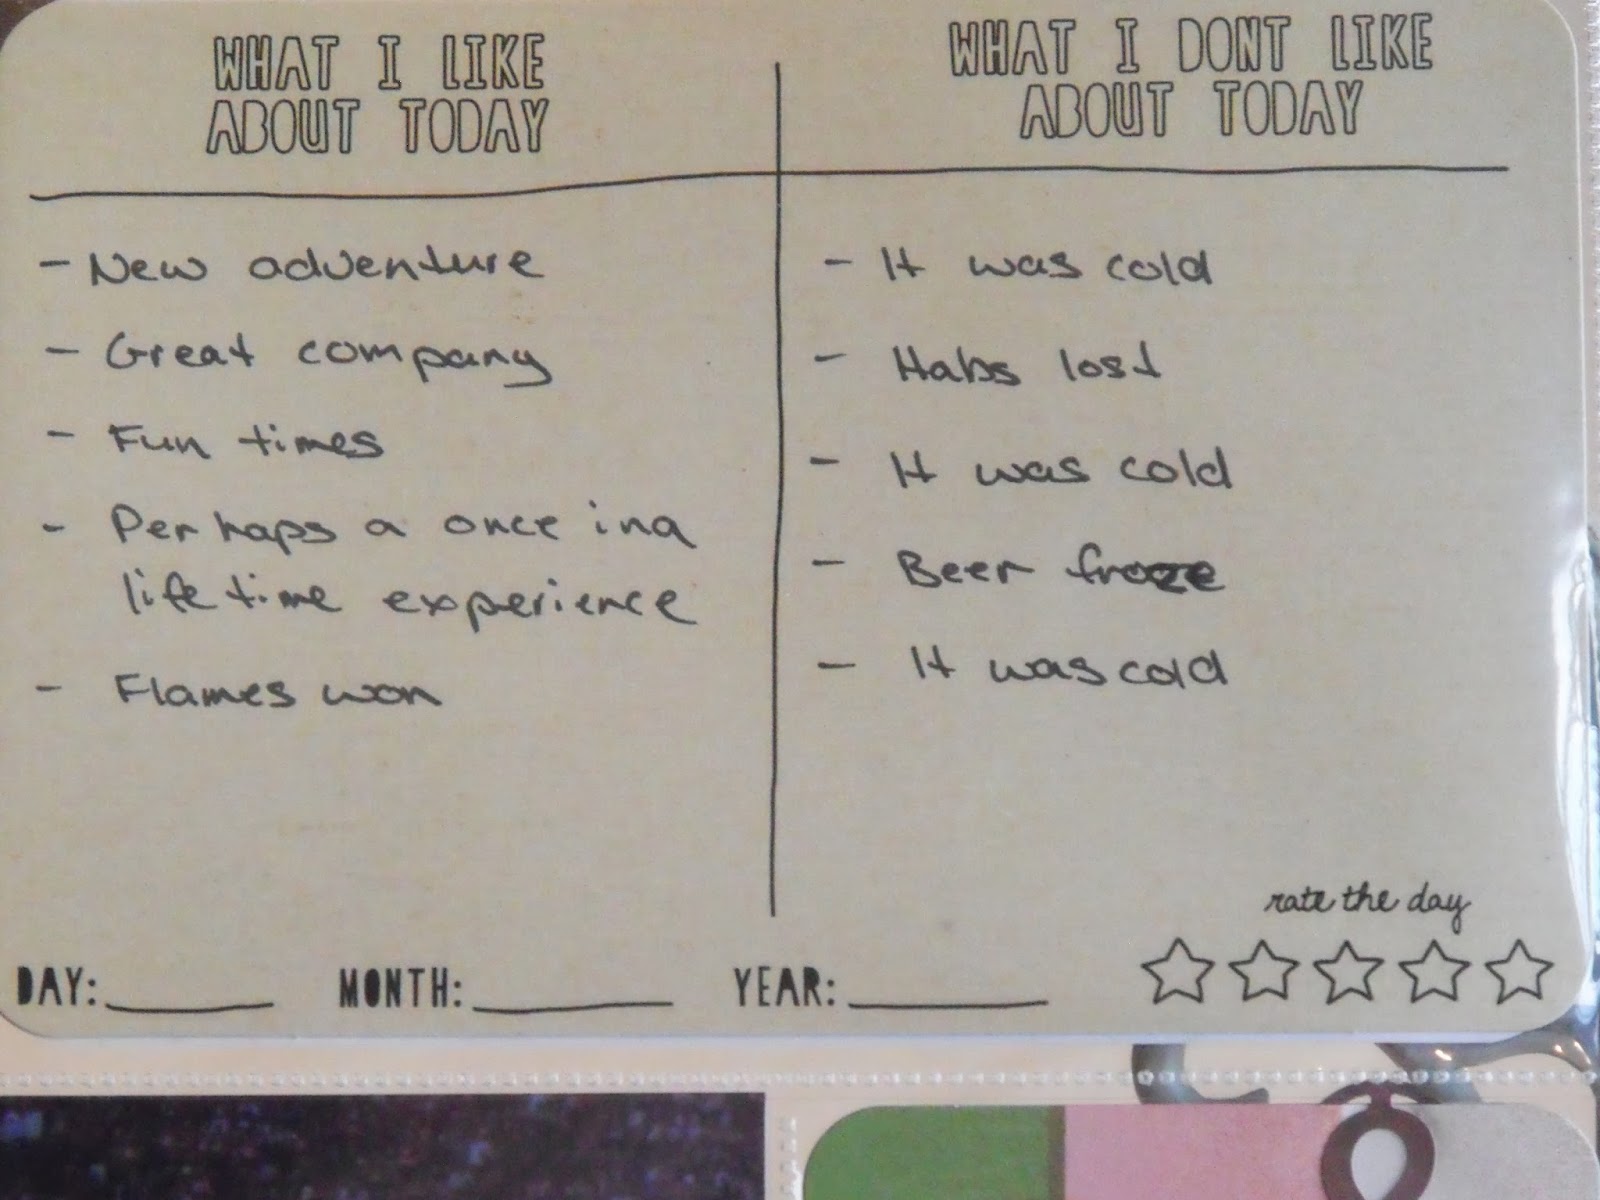 WHAT I LIKE
ABOUT TODAY
- New adventure
- Great company
- Fun times
- Perhaps a once in a
lifetime experience
- Flames won
WHAT I DONT LIKE
ABOUT TODAY
- It was cold
- Habs lost
- It was cold
- Beer froze
- It was cold
rate the day
DAY: MONTH: YEAR: